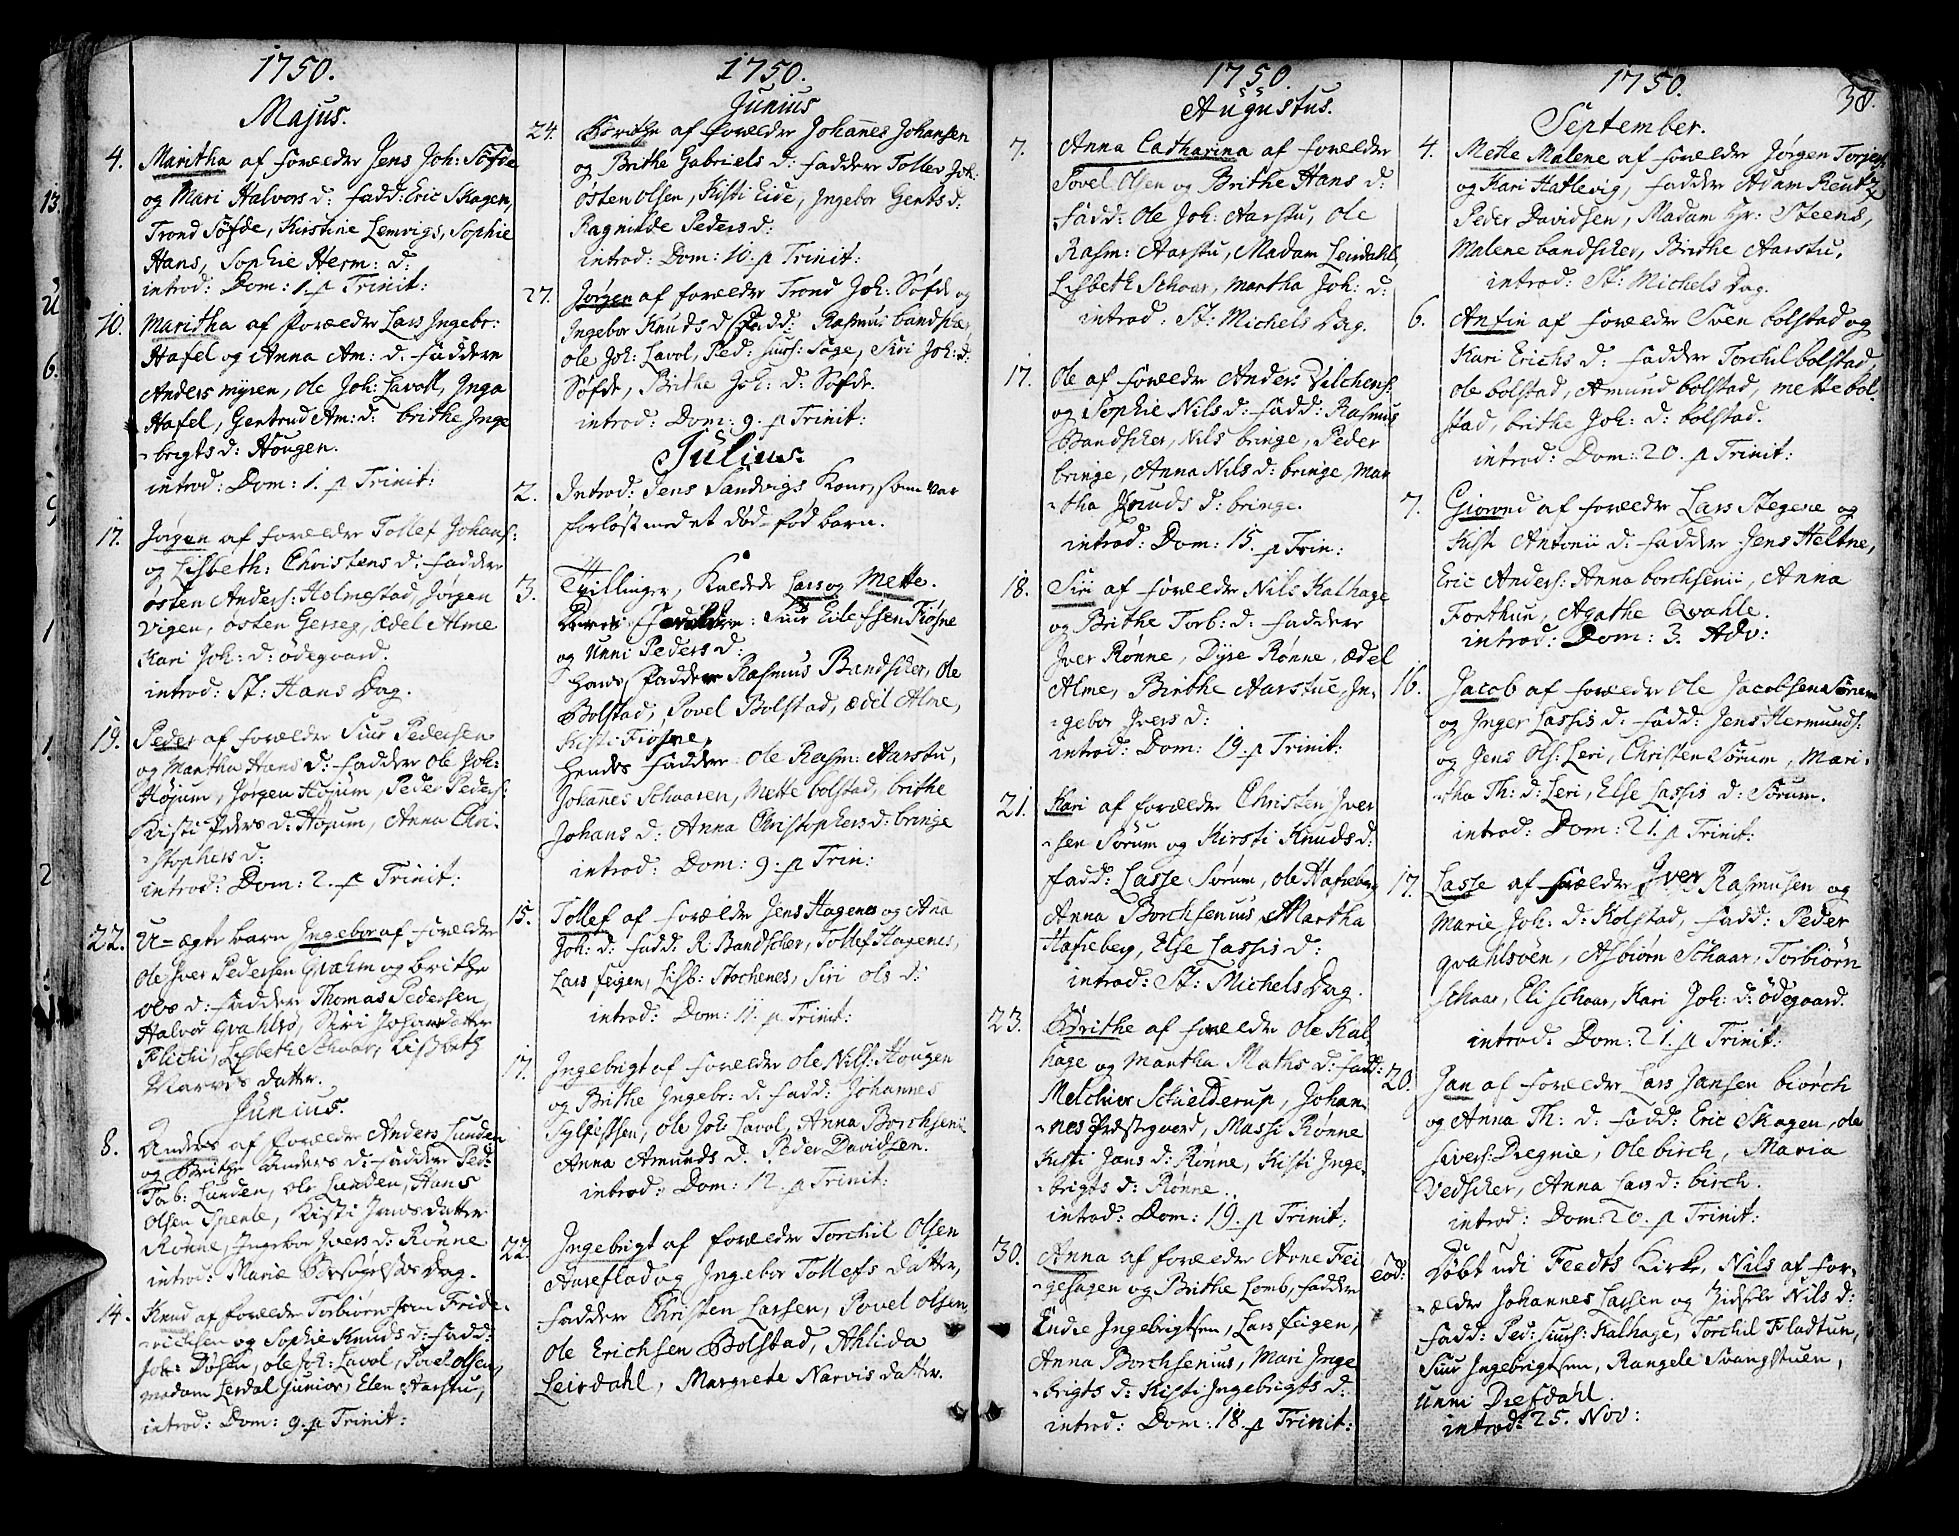 1750.
Majus.
4. Maritha af forældre Jens Joh: Söfde
og Mari Halvors d: fadd: Eric Skagen,
Trond Söfde, Kirstine Lemvigs, Sophie
Hans, Sophie Herm: d:
introd: Dom: 1. p Trinit:
10. Maritha af forældre Lars Ingebr:
Hafel og Anna Am: d. faddere
Anders myren, ole Joh: Lavoll, Inga
Hafel, Gertrud Am: d: brithe Inge
-brigts d: Hougen.
introd: Dom: 1. p Trinit:
17. Jørgen af forældre Tollef Johans:
og Lisbeth: Christens d: faddere
östen Anders: Holmestad, Jørgen
Vigen, östen Gerseg, Ædel Alme
Kari Joh: d: ödegaard.
introd: St: Hans Dag.
19. Peder af forældre Siur Pedersen
og Martha Hans d: faddere ole Joh:
Höjum, Jørgen Höjum, Peder Peders:
Kisti Peders d: Höjum, Anna Chri-
-stophers d:
introd: Dom: 2. p Trinit:
22. U-ægte barn Ingebor af forældre
ole Iver Pedersen Qvahm og brithe
oles d: faddere Thomas Pedersen,
Halvor Qvahlsø, Siri Johansdatter
Flichi, Lisbeth Schaar, Lissbeth
Narves datter.
Junius.
8. Anders af forældre Anders Lunden
og Brithe Anders d: faddere Ped:
Torb: Lunden, ole Lunden, Hans
Olsen Sperle, Kisti Jansdatter
Rönne, Ingebor Ivers d: Rönne
introd: Mariæ Besøgelses Dag.
14. Knud af forældre Torbiörn Joen Fride-
-richsen og Sophie Knuds d: fadd:
Joh: Dösen, ole Joh: Lavol, Povel olsen,
madam Lerdal Junior, Elen Aarstu,
introd: Dom: 9. p Trinit:
1750.
Junius
24. Brithe af forældre Johannes Johansen
og Brithe Gabriels d: faddere Tollev Joh:
östen olsen, Kisti Eide, Ingebor Gents d:
Ragnilde Peders d:
introd: Dom: 10. p Trinit:
27. Jørgen af forældre Trond Joh: Söfde og
Ingebor Knuds d: Fadd: Rasmus bandscher
ole Joh: Lavol, Ped: Siurs: Söge, Siri Joh: d:
Söfde, Brithe Joh: d: Söfde.
introd: Dom: 9. p Trinit:
Julius.
2. Introd: Jens Sandvigs Kone, som var
forløst med et død-fød barn.
3. Tvillinger, Kaldede Lars og Mette.
Forældre: Siur Eilefsen Fiøsne
og Unni Peders d:
hans Faddere Rasmus Bandscher, ole
Bolstad, Povel Bolstad, ædel Alme,
Kisti Fiøsne,
hendes faddere ole Rasm: Aarstu,
Johannes Schaaren, Mette bolstad, brithe
Johans d: Anna Christophers d: bringe
introd: Dom: 9. p Trin:
15. Tollef af forældre Jens Hagenes og Anna
Joh: d: fadd: R: Bandscher, Tollef Hagenes,
Lars feigen, Lisb: Stochenes, Siri ols d:
introd: Dom: 11. p Trinit:
17. Ingebrigt af forældre ole Nils: Hougen
og Brithe Ingebr: d. fadd: Johannes
Sylfestsen, ole Joh: Lavol, Anna Borchsenii
Anna Amunds d. Peder Davidsen.
introd: Dom: 12. p Trinit:
22. Ingebrigt af forældre Torchil Olsen
Aureflad og Ingebor Tollefs datter,
faddere Christen Larsen, Povel olsen,
ole Erichsen Bolstad, Ahlida
Leirdahl, Margrete Narvis datter.
1750.
Augustus.
7. Anna Catharina af forældre
Povel Olsen og Brithe Hans d:
fadd: ole Joh: Aarstu, ole
Rasm: Aarstu, Madam Leirdahl,
Lisbeth Schaar, Martha Joh: d:
introd: St: Michels Dag.
17. ole af forældre Anders Vilchens:
og Sophie Nils d: fadd: Rasmus
Bandscher, Nils bringe, Peder
bringe, Anna Nils d: bringe, Mar
-tha Knuds d: bringe.
introd: Dom: 15. p Trin:
18. Siri af forældre Nils Kalhage
og Brithe Torb: d: faddere
Iver Rønne, Dyre Rønne, ædel
Alme, Brithe Aarstue, In-
-gebor Ivers d:
introd: Dom: 19. p Trinit:
21. Kari af forældre Christen Iver
-sen Sørum og Kirsti Knuds d:
fadd: Lasse Sørum, ole Hafseberg
Anna Borchsenius, Martha
Hafseberg, Else Lassis d:
introd: St: Michels Dag.
23. Brithe af forældre ole Kal
hage og Martha Maths d: fadd:
Melchior Schielderup, Johan-
-nes Præstegaard, Massi Rönne
Kisti Jans d: Rönne, Kisti Inge-
-brigts d: Rønne.
introd: Dom: 19. p Trinit:
30. Anna af forældre Arne Fei
-gesagen og Brithe Lomb, faddere
Endre Ingebrigtsen, Lars feigen,
Anna Borchsenius, Mari Inge
-brigts d: Kisti Ingebrigts d:
introd: Dom: 18. p Trinit:
1750.
38.
September.
4. Mette Malene af forældre Jørgen Torjers:
og Kari Hatlevig, faddere Adam Reutz
Peder Davidsen, Madam Hr: Steens,
Malene bandscher, Brithe Aarstu,
introd: St: Michels Dag.
6. Anfin af forældre Sven bolstad og
Kari Erichs d: faddere Torchil bolstad,
ole bolstad, Amund bolstad, mette bol-
stad, brithe Joh: d: bolstad.
introd: Dom: 20. p Trinit:
7. Giørond af forældre Lars Stegene og
Kisti Antonii d: faddere Jens Heltne,
Eric Anders: Anna borchsenii, Anna
Forthun, Agathe Qvahle.
introd: Dom: 3. Adv:
16. Jacob af forældre ole Jacobsen Sørum
og Inger Lassis d: fadd: Jens Hermunds:
og Jens Ols: Leri, Christen Sörum, Mari-
-tha Th: d: Leri, Else Lassis d: Sørum.
introd: Dom: 21. p Trinit:
17. Lasse af forældre Iver Rasmusen og
Marie Joh: d: Kolstad, fadd: Peder
qvahlsöen, Asbiørn Schaar, Torbiørn
Schaar, Eli Schaar, Kari Joh: d: ödegaard.
introd: Dom: 21. p Trinit:
20. Jan af forældre Lars Jansen biörch
og Anna Th: d: fadd: Eric Skagen, ole
Sivers: Dregnie, ole birch, Maria
Vedscher, Anna Lars d: birch.
introd: Dom: 20. p Trinit:
eod: Døbt udi Feedts Kirke, Nils af for-
-ældre Johannes Larsen og Zidsele Nils d:
fadd: Ped: Siurs: Kalhage, Torchil Fladtun,
Siur Ingebrigtsen, Rangele Svangstuen,
Unni Drefdahl.
introd: 25. Nov: